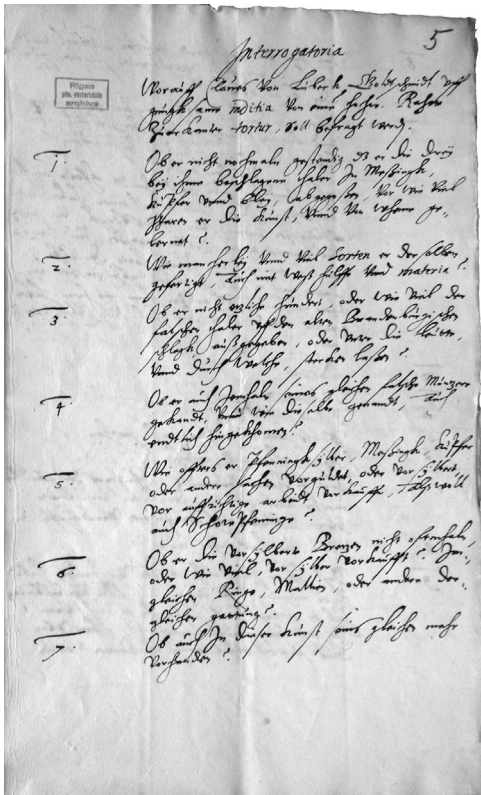 Interrogatoria
5
Rigaer
archivs
Worauff Claues von Lübeck, Goldtschmidt uff
inditia von eine Hochw. Rathe
tortur, soll befragt werd.
1.
Ob er nicht nochmaln gestendig dz er die drey
bey ihme beschlagene thaler In Meßingk,
Kupfer vnnd bley, abgegossen, vor wie viel
Jharen er die Kunst, vnnd von wheme ge-
lernet?
2.
Wie mancherley vnnd viel Sorten er derselben
gefertigt, Auch mit weß hilff vnnd materia?
3.
Ob er nicht etzliche hundert, oder wie viel der
falschen thaler uf den alten Brandenburgischen
schlagk außgegeben, oder unter die leutte,
vnnd durch welche, stecken lassen?
4.
Ob er auch Jemhals seines gleichen falsche Müntzer
gekandt, vnd wie dieselbe genandt, Auch
endtlich hingekhomen?
5.
Wie offters er Pfenningksilber, Meßingk, Kupffer
oder andere sachen vorguldet, oder vorsilbert,
vor auffrichtige arbeidt verkaufft,
auch Schowpfenninge?
6.
Ob er die vorsilberte Bremzen nicht ofternhaln,
oder wie viel, vor silber vorkaufft? Im-
gleichen Ringe, oder andern der-
gleichen gattung?
7.
Ob auch In dieser Kunst seins gleichen mehr
vorhanden?